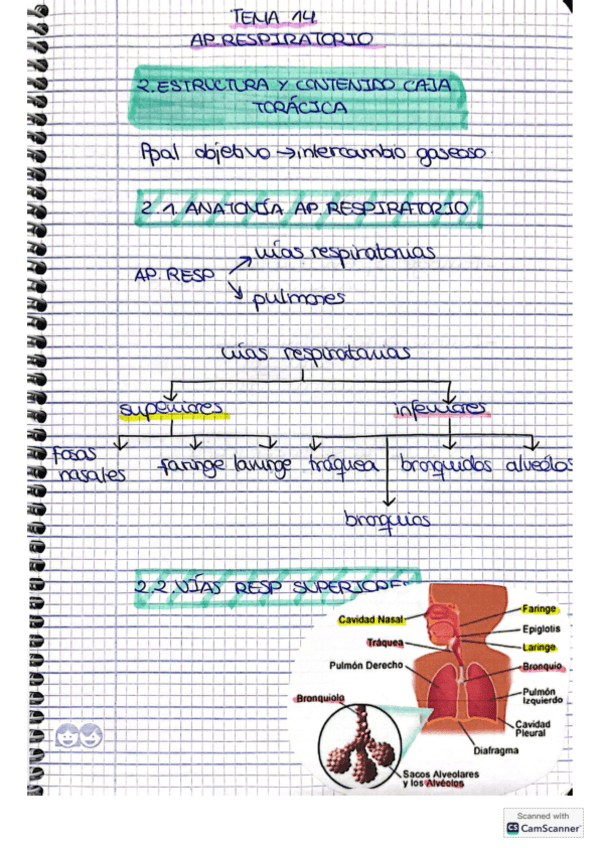 TEMA 14.
AP. RESPIRATORIO
2. ESTRUCTURA Y CONTENIDO CAJA
TORÁCICA
Ppal objetivo → intercambio gaseoso.
2.1. ANATOMÍA AP. RESPIRATORIO
vías respiratorias
AP. RESP
pulmones
vías respiratorias
superiores inferiores
fosas
nasales faringe laringe tráquea bronquiolos alveólos
bronquios
2.2. VÍAS RESP SUPERIORES
Cavidad Nasal Faringe
Epiglotis
Tráquea Laringe
Pulmón Derecho Bronquio
Bronquiolo Pulmón
Izquierdo
Cavidad
Pleural
Diafragma
Sacos Alveolares
y los Alvéolos
Scanned with
CS CamScanner